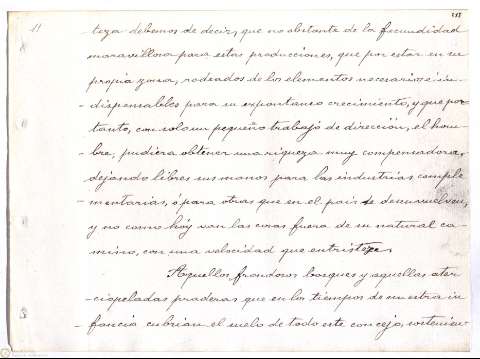 11
- teza debemos de decir, que no obstante de la fecundidad
maravillosa para estas producciones, que por estar en su
propia zona, rodeados de los elementos necesarios é in-
- dispensables para su expontaneo crecimiento, y que por
tanto, con solo un pequeño trabajo de dirección, el hom-
- bre, pudiera obtener una riqueza muy compensadora,
dejando libres sus manos para las industrias comple
- mentarias, ó para otras que en el pais se desenvuelven,
y no como hoy van las cosas fuera de su natural ca-
- mino, con una velocidad que entristeze.
Aquellos frondosos bosques y aquellas ater
- ciopeladas praderas que en los tiempos de nuestra in
- fancia cubrian el suelo de todo este concejo, sostenian